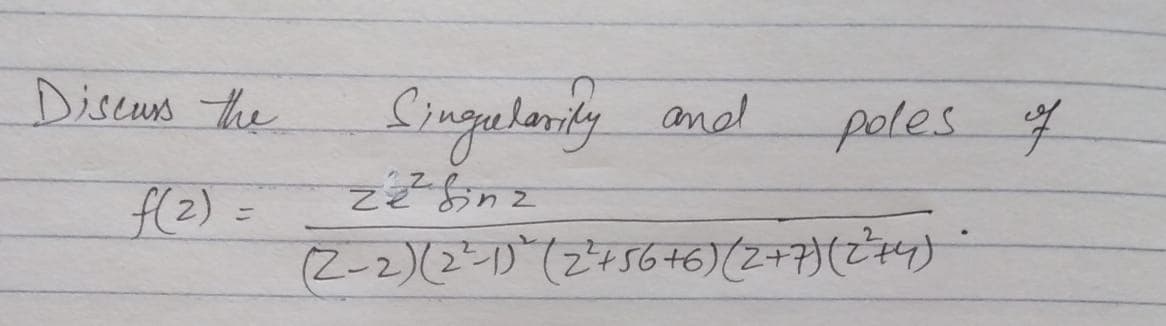 Discuss the Singularity and poles of
f(z) = z e^z sin z / (z-2)(z^2-1)^2 (z^2+56+6)(z+7)(z^2+4) .